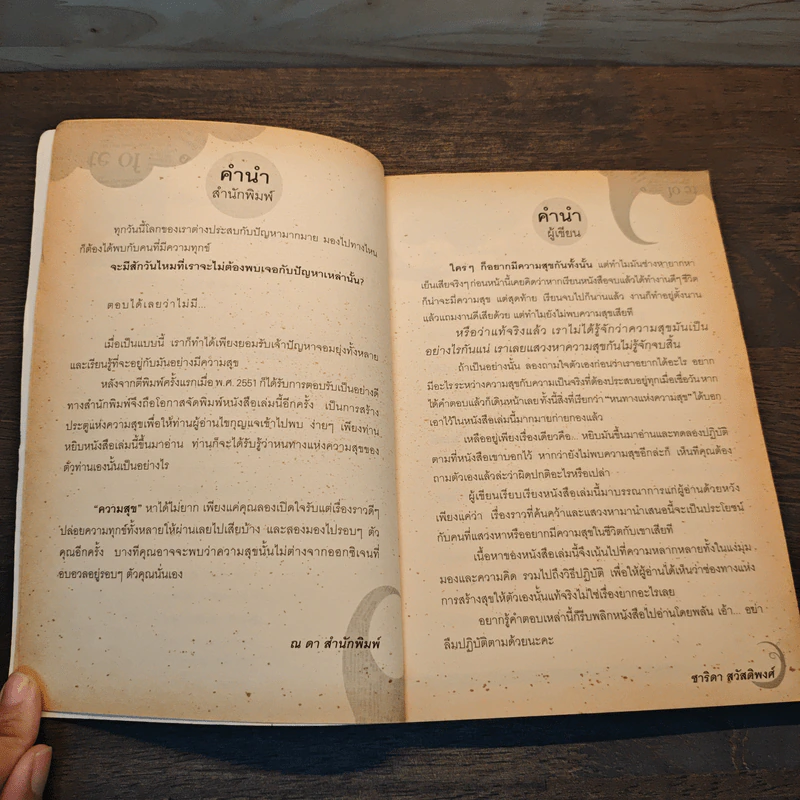 คำนำ
สำนักพิมพ์
ทุกวันนี้โลกของเราต่างประสบกับปัญหามากมาย มองไปทางไหน
ก็ต้องได้พบกับคนที่มีความทุกข์
จะมีสักวันไหมที่เราจะไม่ต้องพบเจอกับปัญหาเหล่านั้น?
ตอบได้เลยว่าไม่มี...
เมื่อเป็นแบบนี้ เราก็ทำได้เพียงยอมรับเจ้าปัญหาจอมยุ่งทั้งหลาย
และเรียนรู้ที่จะอยู่กับมันอย่างมีความสุข
หลังจากตีพิมพ์ครั้งแรกเมื่อ พ.ศ. 2551 ก็ได้รับการตอบรับเป็นอย่างดี
ทางสำนักพิมพ์จึงถือโอกาสจัดพิมพ์หนังสือเล่มนี้อีกครั้ง เป็นการสร้าง
ประตูแห่งความสุขเพื่อให้ท่านผู้อ่านไขกุญแจเข้าไปพบ ง่ายๆ เพียงท่าน
หยิบหนังสือเล่มนี้ขึ้นมาอ่าน ท่านก็จะได้รับรู้ว่าหนทางแห่งความสุขของ
ตัวท่านเองนั้นเป็นอย่างไร
“ความสุข” หาได้ไม่ยาก เพียงแค่คุณลองเปิดใจรับแต่เรื่องราวดีๆ
ปล่อยความทุกข์ทั้งหลายให้ผ่านเลยไปเสียบ้าง และลองมองไปรอบๆ ตัว
คุณอีกครั้ง บางทีคุณอาจจะพบว่าความสุขนั้นไม่ต่างจากออกซิเจนที่
อบอวลอยู่รอบๆ ตัวคุณนั่นเอง
ณ ดา สำนักพิมพ์
คำนำ
ผู้เขียน
ใครๆ ก็อยากมีความสุขกันทั้งนั้น แต่ทำไมมันช่างหายากหา
เย็นเสียจริงๆ ก่อนหน้านี้เคยคิดว่าหากเรียนหนังสือจบแล้วได้ทำงานดีๆ ชีวิต
ก็น่าจะมีความสุข แต่สุดท้าย เรียนจบไปก็นานแล้ว งานก็ทำอยู่ตั้งนาน
แล้วแถมงานดีเสียด้วย แต่ทำไมยังไม่พบความสุขเสียที
หรือว่าแท้จริงแล้ว เราไม่ได้รู้จักว่าความสุขมันเป็น
อย่างไรกันแน่ เราเลยแสวงหาความสุขกันไม่รู้จักจบสิ้น
ถ้าเป็นอย่างนั้น ลองถามใจตัวเองก่อนว่าเราอยากได้อะไร อยาก
มีอะไร ระหว่างความสุขกับความเป็นจริงที่ต้องประสบอยู่ทุกเมื่อเชื่อวัน หาก
ได้คำตอบแล้วก็เดินหน้าเลย ทั้งนี้สิ่งที่เรียกว่า “หนทางแห่งความสุข” ได้บอก
เอาไว้ในหนังสือเล่มนี้มากมายก่ายกองแล้ว
เหลืออยู่เพียงเรื่องเดียวคือ... หยิบมันขึ้นมาอ่านและทดลองปฏิบัติ
ตามที่หนังสือเขาบอกไว้ หากว่ายังไม่พบความสุขอีกล่ะก็ เห็นทีคุณต้อง
ถามตัวเองแล้วล่ะว่าผิดปกติอะไรหรือเปล่า
ผู้เขียนเรียบเรียงหนังสือเล่มนี้มาบรรณาการแก่ผู้อ่านด้วยหวัง
เพียงแค่ว่า เรื่องราวที่ค้นคว้าและแสวงหามานำเสนอนี้จะเป็นประโยชน์
กับคนที่แสวงหาหรืออยากมีความสุขในชีวิตกับเขาเสียที
เนื้อหาของหนังสือเล่มนี้จึงเน้นไปที่ความหลากหลายทั้งในแง่มุม
มองและความคิด รวมไปถึงวิธีปฏิบัติ เพื่อให้ผู้อ่านได้เห็นว่าช่องทางแห่ง
การสร้างสุขให้ตัวเองนั้นแท้จริงไม่ใช่เรื่องยากอะไรเลย
อยากรู้คำตอบเหล่านี้ก็รีบพลิกหนังสือไปอ่านโดยพลัน เอ้า... อย่า
ลืมปฏิบัติตามด้วยนะคะ
ชาริดา สวัสดิพงศ์